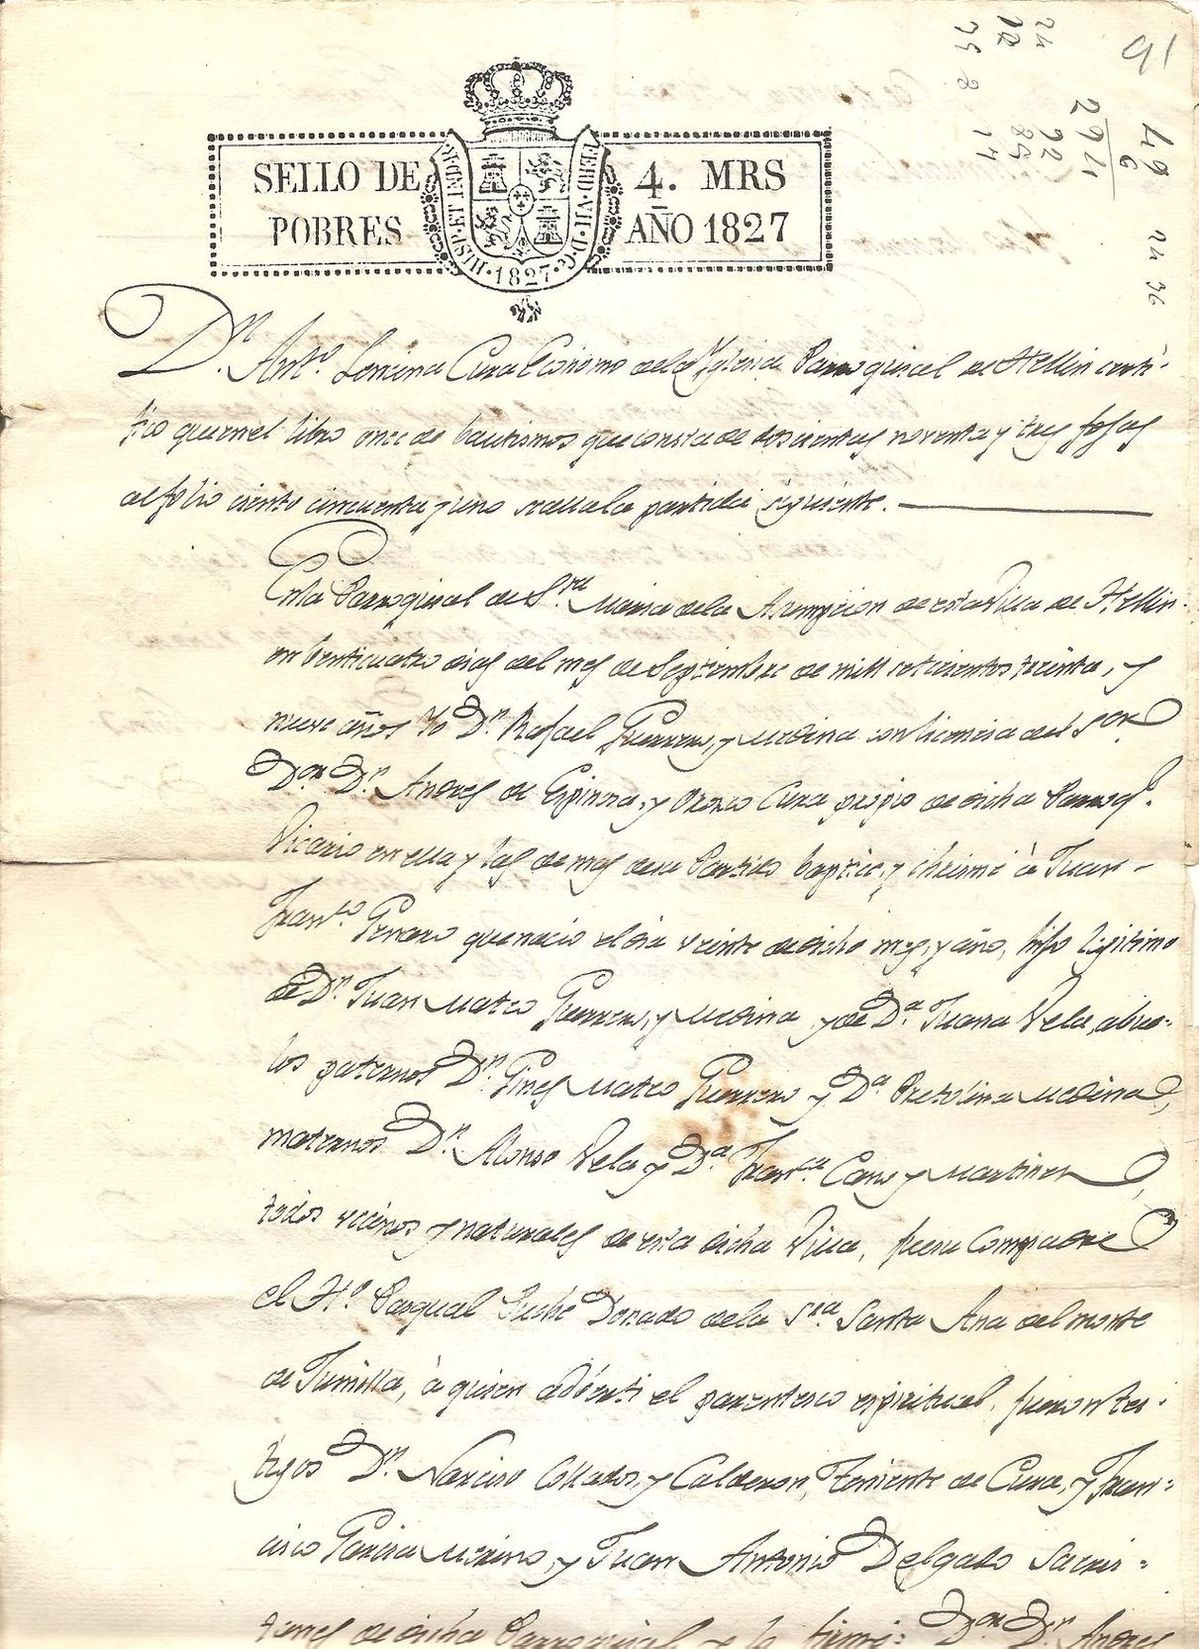 91
SELLO DE 4. MRS
POBRES AÑO 1827
HISP. ET IND. R. · 1827 · FERD. VII. D. G.
24
12
39 8
2911
92
89
14
6
49
24 36
Dn. Antº. Lorenzana Cura Economo dela Yglesia Parroquial de Hellin certi-
fico que en el libro once de bautismos que consta de doscientas noventa y tres fojas
al folio ciento cincuenta y uno se alla la partida siguiente.
Enla Parroquial de Sra. Maria dela Asumpcion de esta Villa de Hellin
en benticuatro dias del mes de Septiembre de mill setecientos treinta, y
nueve años Yo Dn. Rafael Guerrero, y Medina con licencia del Sor.
Dor. Dn. Andres de Espinosa, y Orozco Cura propio de dicha Parroql.
Vicario en ella y las demas de su Partido baptice, y chrisme à Juan-
Franco. Genaro que nacio el dia veinte de dicho mes, y año, hijo legitimo
de Dn. Juan Mateo Guerrero, y Medina y de Da. Juana Vela, abue-
los paternos Dn. Gines Mateo Guerrero y Da. Medina,
maternos Dn. Alonso Vela y Da. Franca. Cano y Martinez,
todos vecinos y naturales de esta dicha Villa, fue su Compadre
el Hº. Pasqual Donado dela Sra. Santa Ana del monte
de Jumilla, à quien adberti el parentesco espiritual, fueron tes-
tigos Dn. Narciso Collados, y Calderon, Teniente de Cura, y Fran-
cisco Garcia Merino, y Juan Antonio Delgado Sacris-
tanes de dicha Parroquial y lo firmé = Dor. Dn. Andres